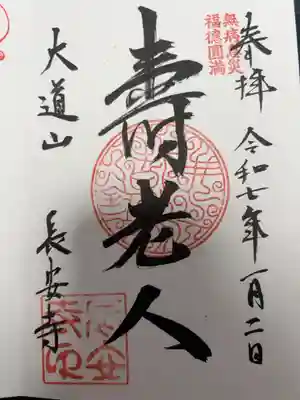 奉拝 令和七年一月二日
無病息災
福徳圓満
壽老人
大道山 長安寺